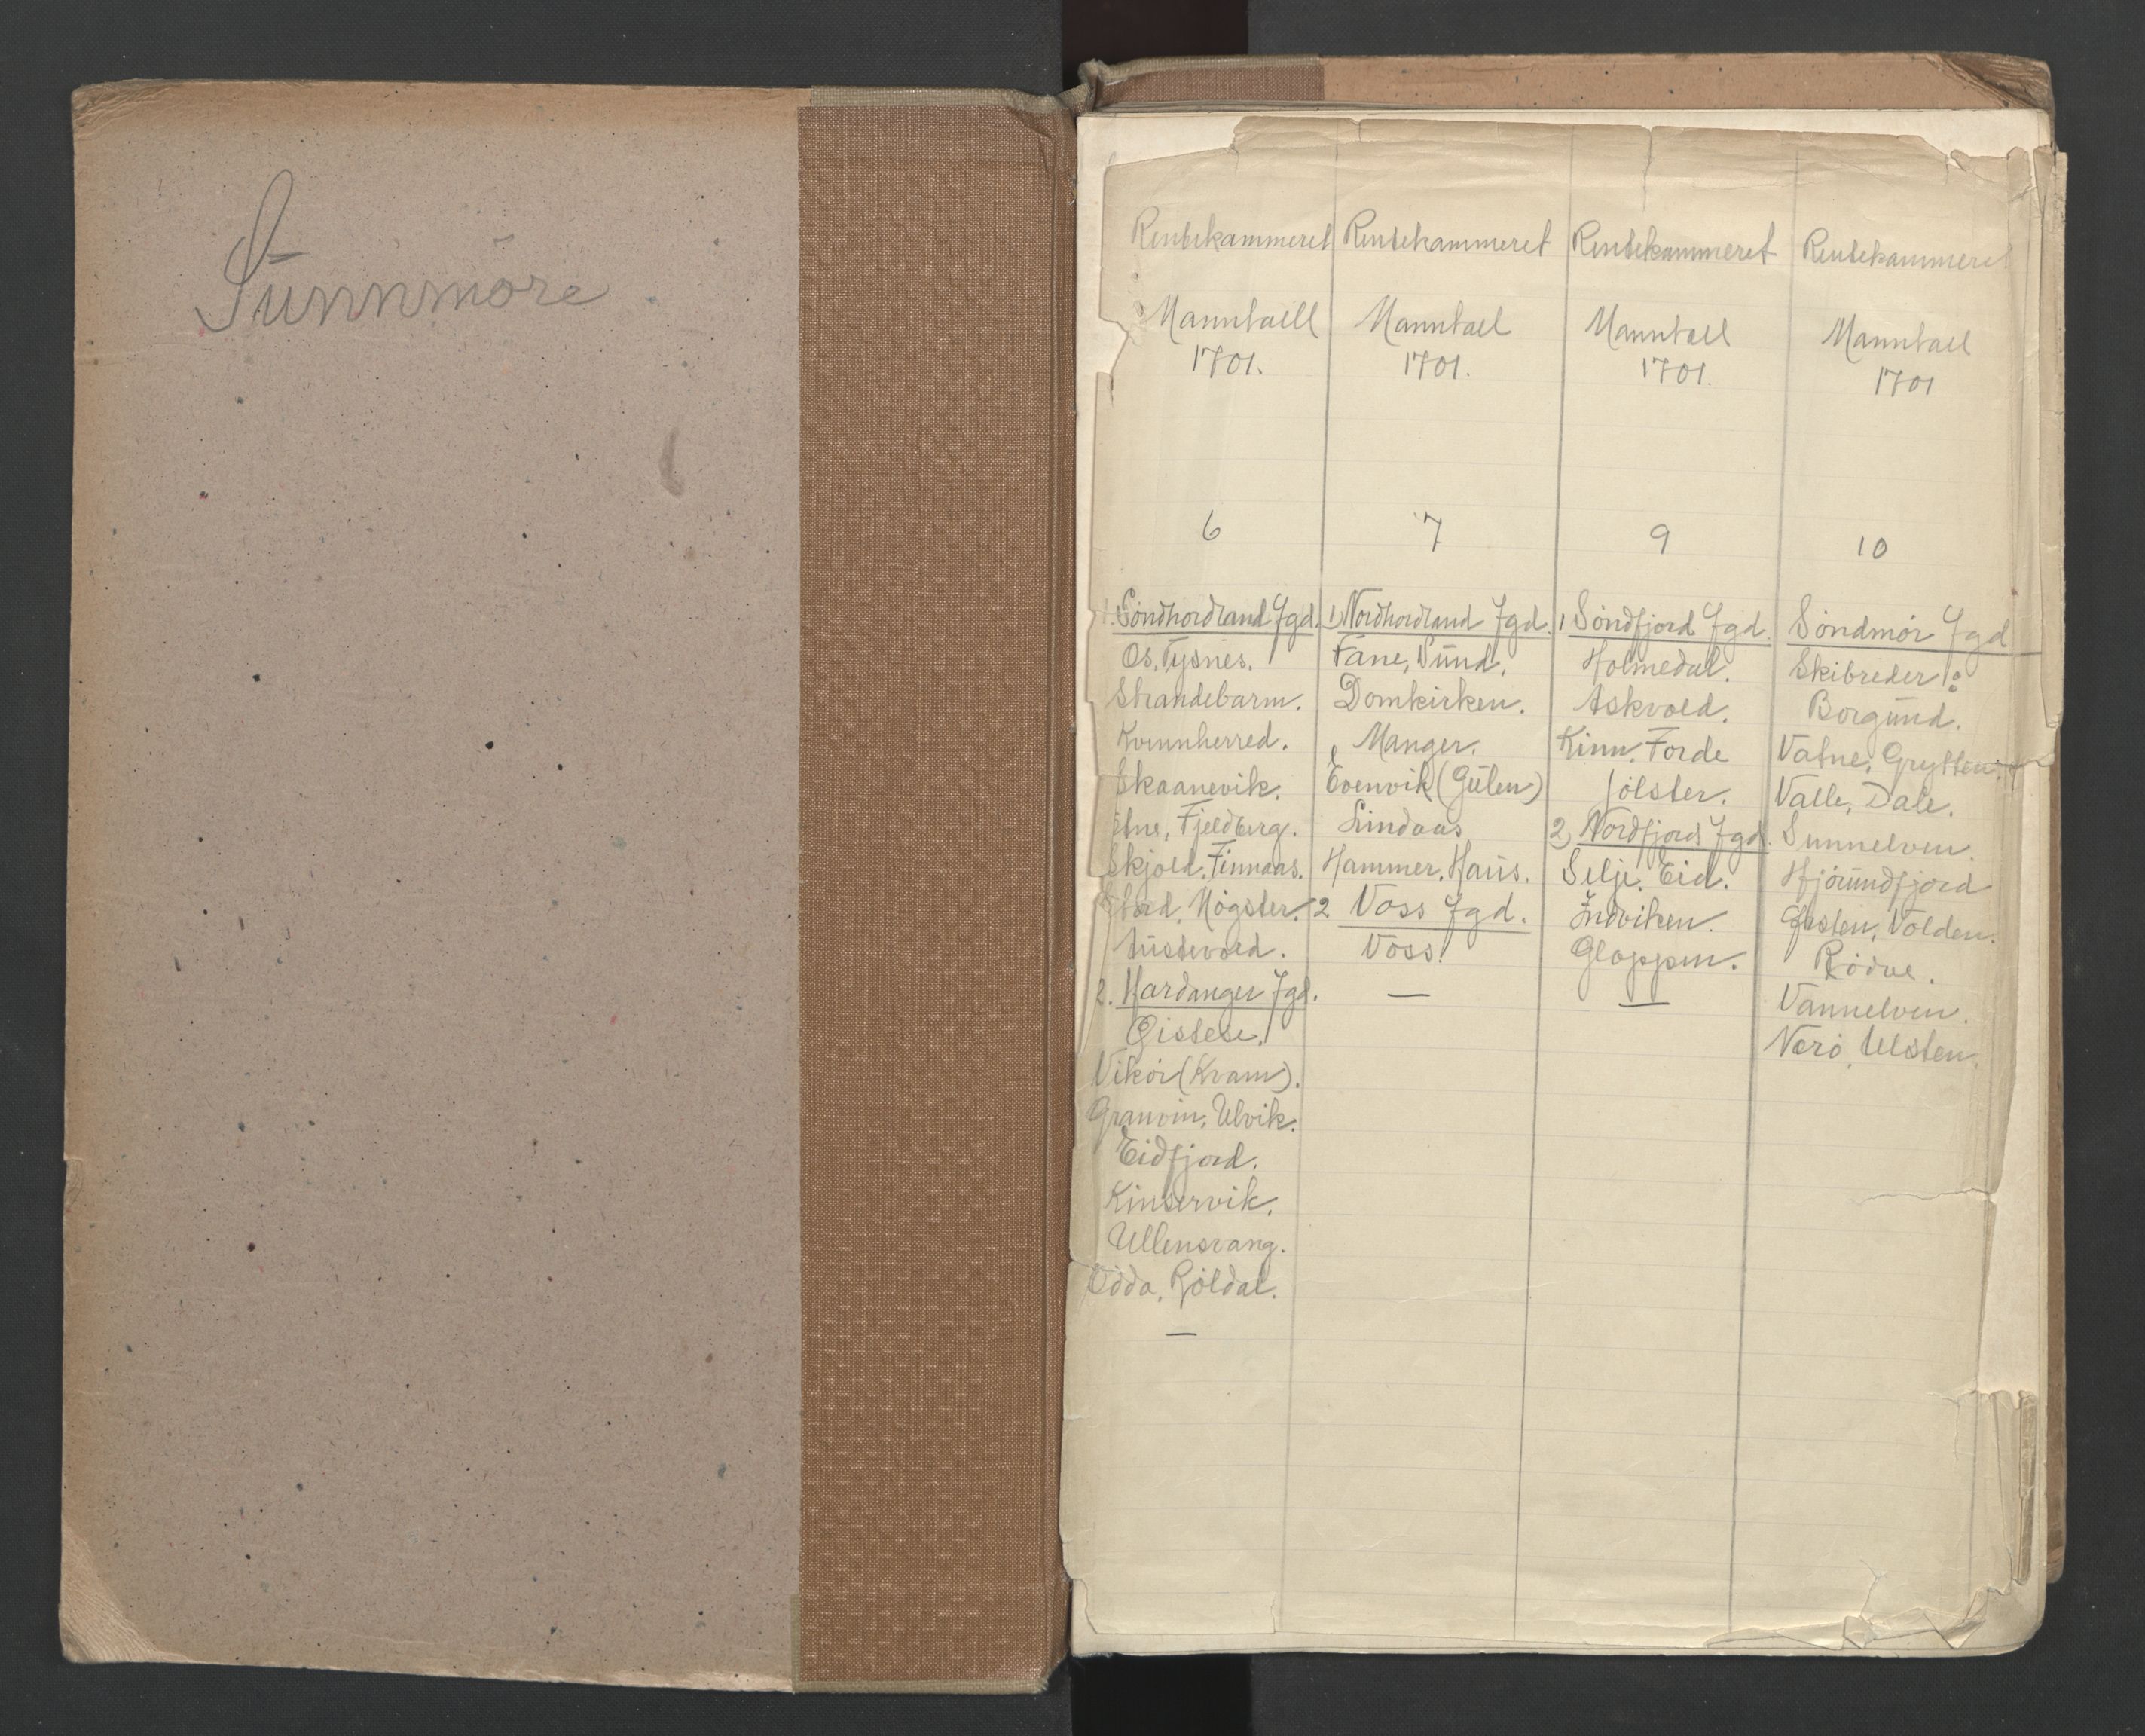 Sunnmøre
Rentekammeret
Manntall
1701.
6
1. Söndhordland Fgd.
Os, Tysnes.
Strandebarm.
Kvinnherred.
Skaanevik.
Etne, Fjeldberg.
Skjold. Finnaas.
Stord, Mögster.
Austevold.
2. Hardanger Fgd.
Oistese.
Vikör (Kvam).
Granvin, Ulvik.
Eidfjord.
Kinservik.
Ullensvang.
Odda, Röldal.
—
Rentekammeret
Manntall
1701.
7
1) Nordhordland Fgd.
Fane, Sund.
Domkirken.
Manger.
Evenvik (Gulen)
Lindaas
Hammer. Haus.
2 Voss Fgd.
Voss.
—
Rentekammeret
Manntall
1701.
9
1 Söndfjord Fgd.
Holmedal.
Askvold.
Kinn. Förde
Jölster.
2) Nordfjord Fgd.
Selje. Eid.
Indviken.
Gloppen.
—
Rentekammeret
Manntall
1701
10
Söndmör Fgd
Skibreder:
Borgund.
Vatne, Grytten.
Valle, Dale.
Sunnelven.
Hjörundfjord
Örsten, Volden.
Rödve.
Vannelven.
Herö, Ulsten.